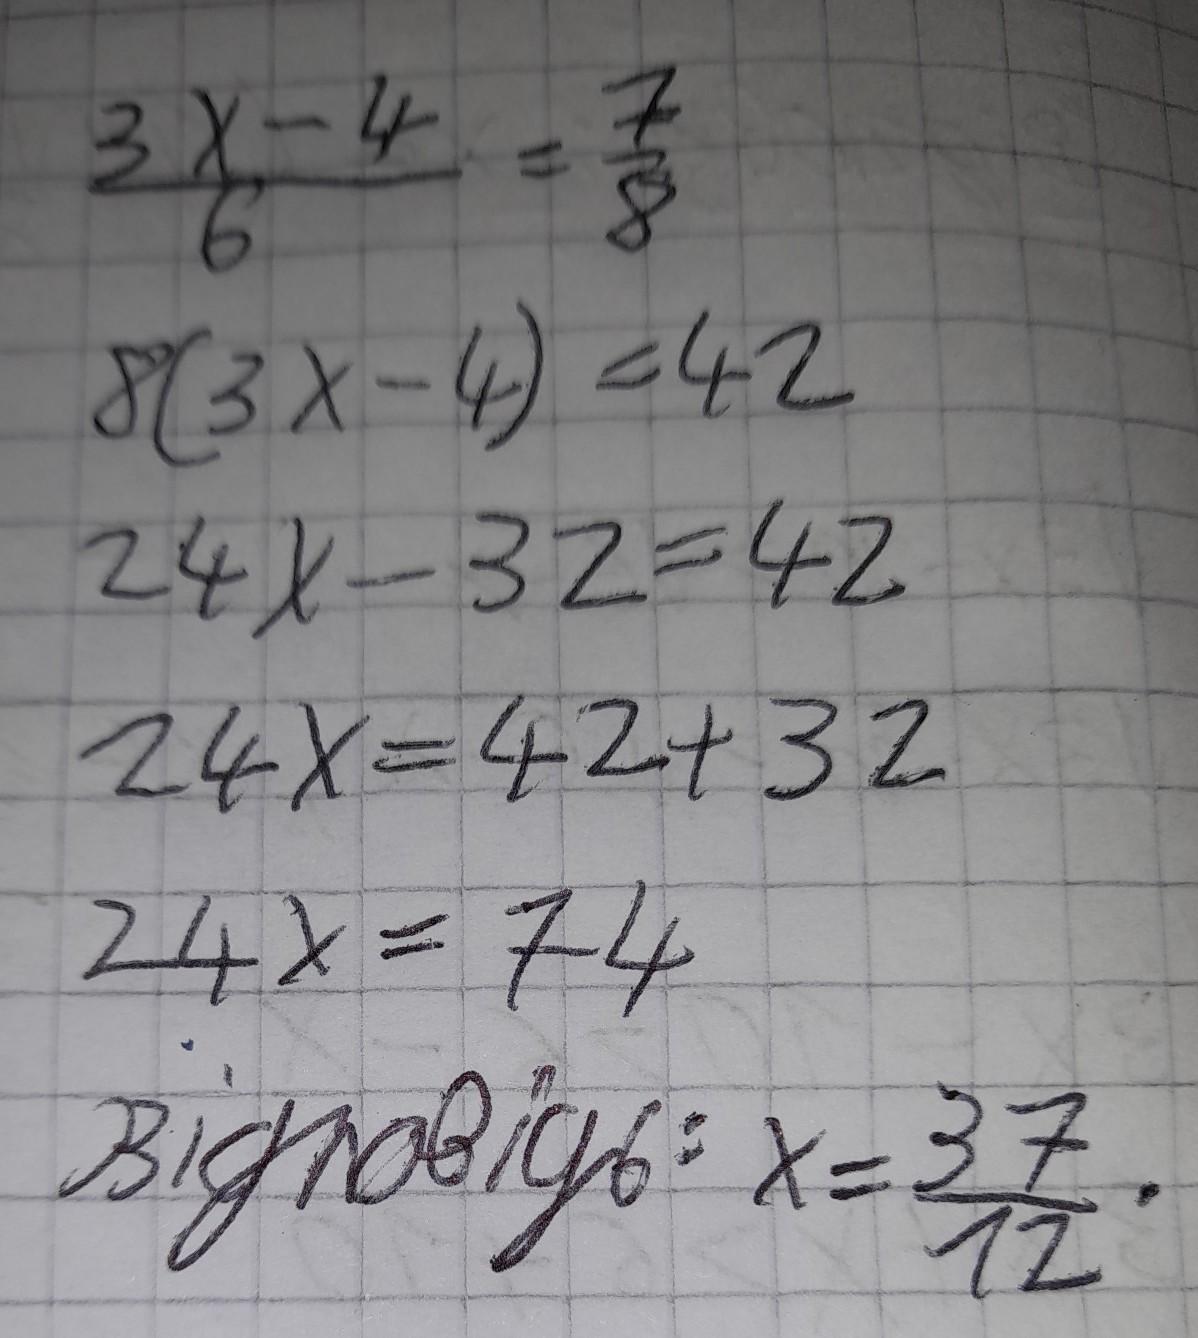 3x-4/6 = 7/8
8(3x-4) = 42
24x-32=42
24x=42+32
24x=74
Відповідь: x=37/12.